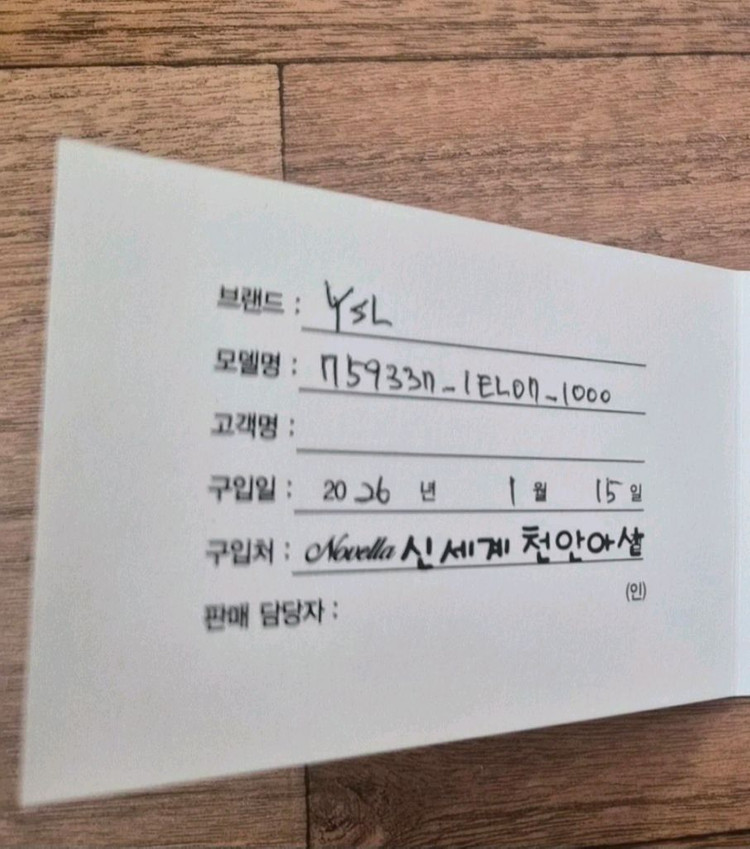 브랜드 : YSL
모델명 : 759337-1EL07-1000
고객명 :
구입일 : 2026 년 1 월 15 일
구입처 : Novella 신세계 천안아산
(인)
판매 담당자 :